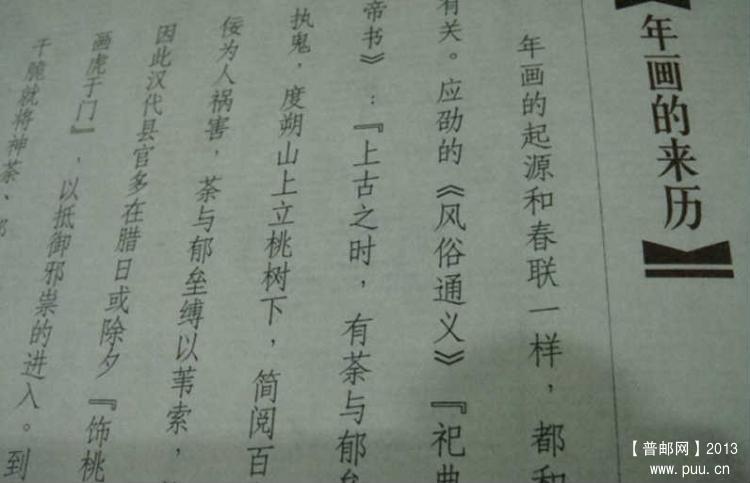 【年画的来历】
年画的起源和春联一样，都和
有关。应劭的《风俗通义》『祀典
帝书》：『上古之时，有荼与郁垒
执鬼，度朔山上立桃树下，简阅百
佞为人祸害，荼与郁垒缚以苇索，
因此汉代县官多在腊日或除夕『饰桃
画虎于门』，以抵御邪祟的进入。到
干脆就将神荼、郁
【普邮网】2013
www.puu.cn